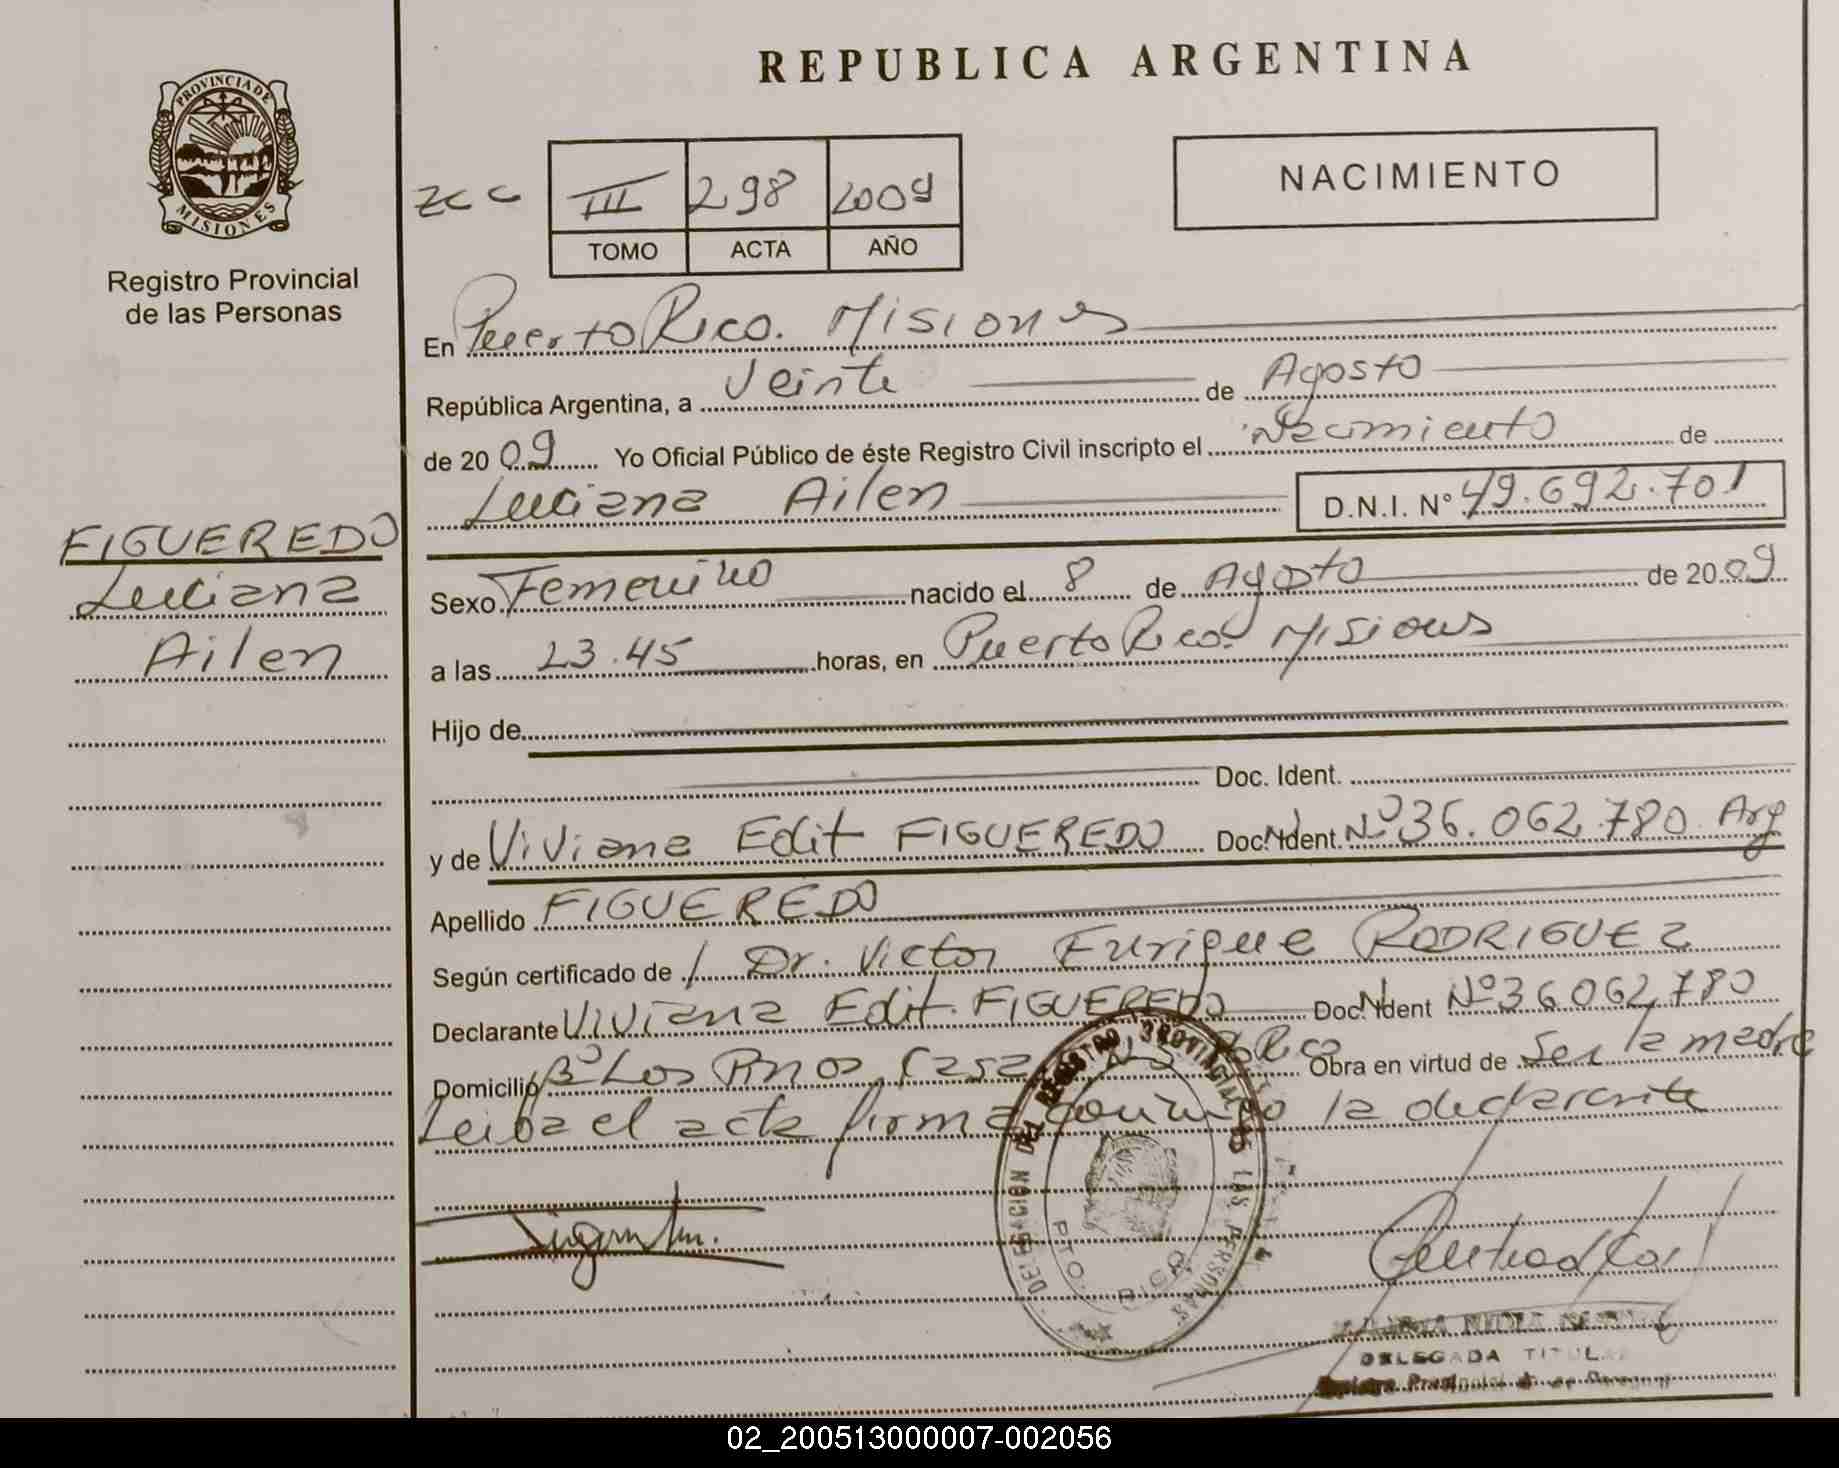 REPUBLICA ARGENTINA
PROVINCIA DE
MISIONES
Registro Provincial
de las Personas
III 298 2009
TOMO ACTA AÑO
NACIMIENTO
En Puerto Rico. Misiones
República Argentina, a Veinte de Agosto
de 2009 Yo Oficial Público de éste Registro Civil inscripto el Nacimiento de
Luciana Ailen D.N.I. Nº 49.692.701
FIGUEREDO
Luciana
Ailen
Sexo Femenino nacido el 8 de Agosto de 2009
a las 23.45 horas, en Puerto Rico. Misiones
Hijo de
Doc. Ident.
y de Viviana Edit FIGUEREDO Doc. Ident. Nº 36.062.780 Arg
Apellido FIGUEREDO
Según certificado de Dr. Victor Enrique RODRIGUEZ
Declarante Viviana Edit. FIGUEREDO Doc. Ident Nº 36.062.780
Domicilio Bº Los Pinos Casa Nº 5 P. Rico Obra en virtud de Ser la madre
Leida el acta firma conmigo la declarante
DELEGACION DEL REGISTRO PROVINCIAL DE LAS PERSONAS
PTO. RICO
DELEGADA TITULAR
02_200513000007-002056